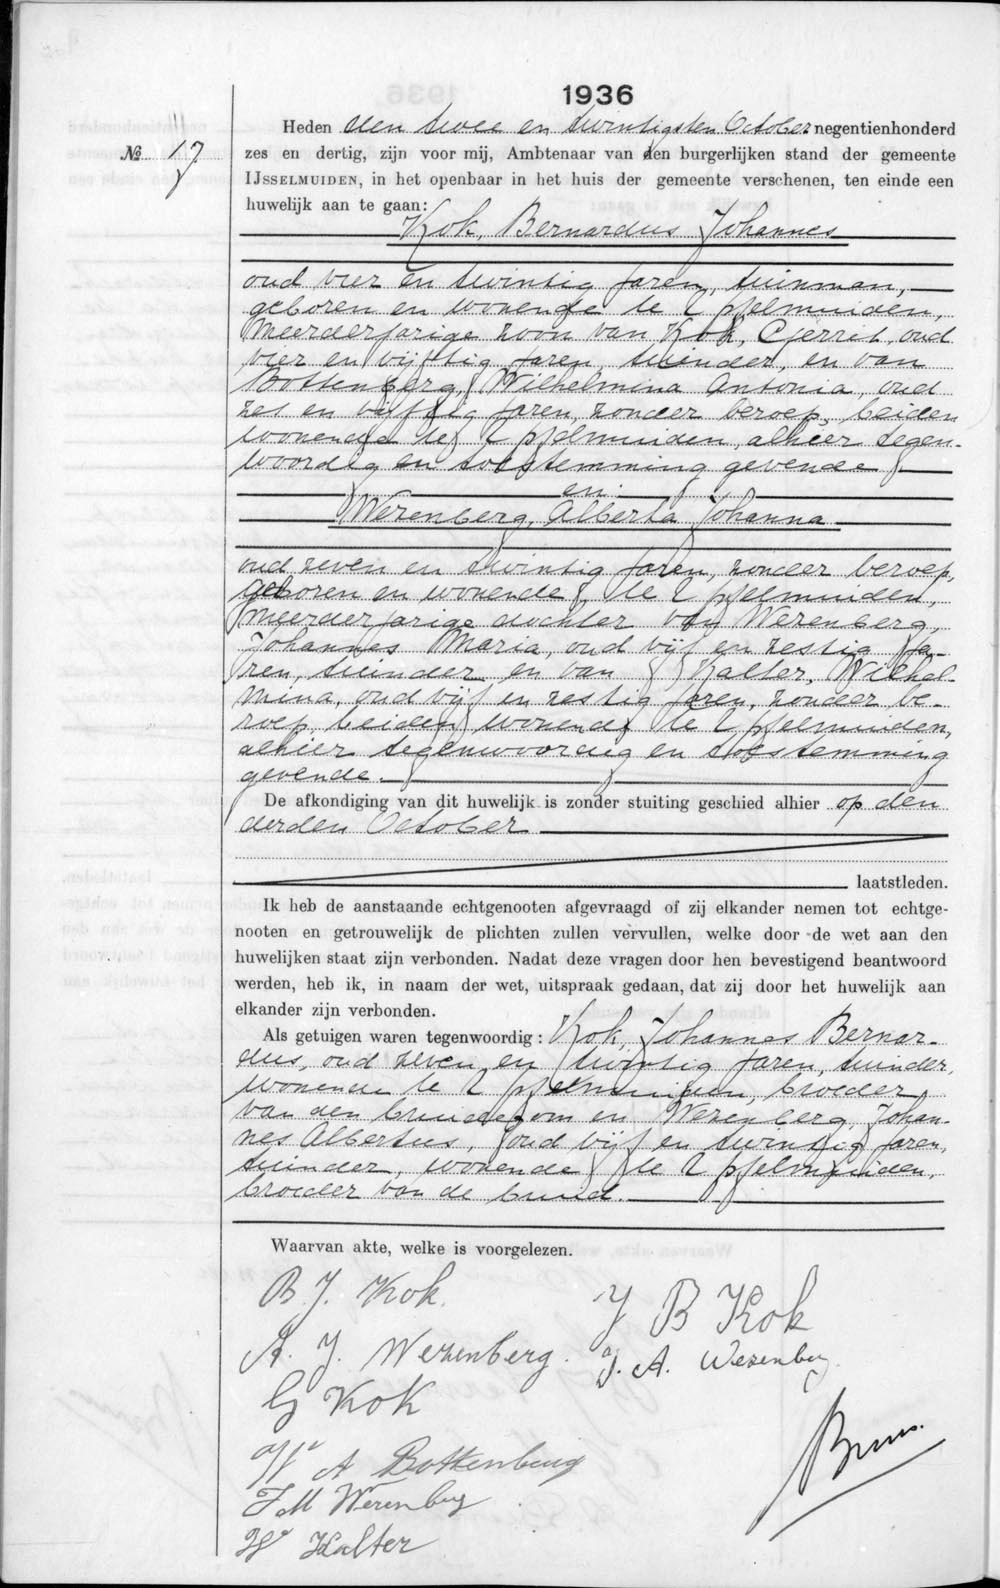 1936
Heden den twee en twintigsten October negentienhonderd
№ 17.
zes en dertig, zijn voor mij, Ambtenaar van den burgerlijken stand der gemeente
IJSSELMUIDEN, in het openbaar in het huis der gemeente verschenen, ten einde een
huwelijk aan te gaan:
Kok, Bernardus Johannes
oud vier en twintig jaren, tuinman,
geboren en wonende te IJsselmuiden,
meerderjarige zoon van Kok, Gerrit, oud
vier en vijftig jaren, tuinder, en van
Bottenberg, Wilhelmina Antonia, oud
zes en vijftig jaren, zonder beroep, beiden
wonende te IJsselmuiden, alhier tegen-
woordig en toestemming gevende
en
Wezenberg, Alberta Johanna
oud zeven en twintig jaren, zonder beroep,
geboren en wonende te IJsselmuiden,
meerderjarige dochter van Wezenberg,
Johannes Maria, oud vijf en zestig ja-
ren, tuinder en van Kalter, Wilhel-
mina, oud vijf en zestig jaren, zonder be-
roep, beiden wonende te IJsselmuiden,
alhier tegenwoordig en toestemming
gevende.
De afkondiging van dit huwelijk is zonder stuiting geschied alhier op den
derden October
laatstleden.
Ik heb de aanstaande echtgenooten afgevraagd of zij elkander nemen tot echtge-
nooten en getrouwelijk de plichten zullen vervullen, welke door de wet aan den
huwelijken staat zijn verbonden. Nadat deze vragen door hen bevestigend beantwoord
werden, heb ik, in naam der wet, uitspraak gedaan, dat zij door het huwelijk aan
elkander zijn verbonden.
Als getuigen waren tegenwoordig: Kok, Johannes Bernar-
dus, oud zeven en twintig jaren, tuinder,
wonende te IJsselmuiden, broeder
van den bruidegom en Wezenberg, Johan-
nes Albertus, oud vijf en twintig jaren,
tuinder, wonende te IJsselmuiden,
broeder van de bruid.
Waarvan akte, welke is voorgelezen.
B. J. Kok.
J B Kok
A. J. Wezenberg.
J. A. Wezenberg
G Kok
W A Bottenberg
Bruns.
J M Wezenberg
W Kalter